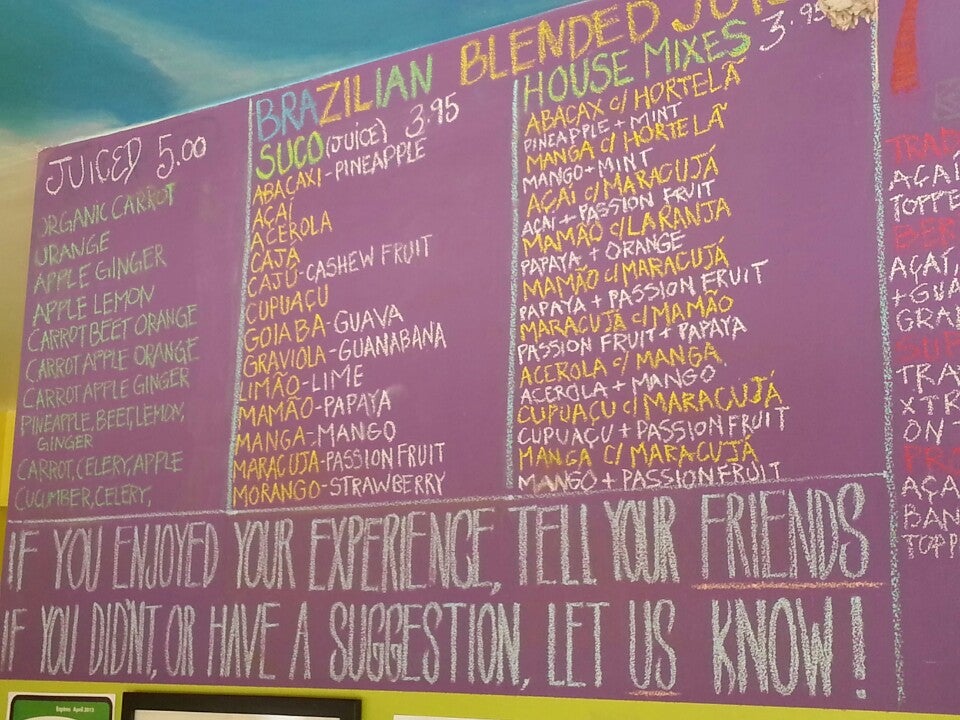 JUICED 5.00
ORGANIC CARROT
ORANGE
APPLE GINGER
APPLE LEMON
CARROT BEET ORANGE
CARROT APPLE ORANGE
CARROT APPLE GINGER
PINEAPPLE, BEET, LEMON,
GINGER
CARROT, CELERY, APPLE
CUCUMBER, CELERY,
BRAZILIAN BLENDED
SUCO (JUICE) 3.95
ABACAXI-PINEAPPLE
AÇAÍ
ACEROLA
CAJA
CAJÚ-CASHEW FRUIT
CUPUAÇU
GOIABA-GUAVA
GRAVIOLA-GUANABANA
LIMÃO-LIME
MAMÃO-PAPAYA
MANGA-MANGO
MARACUJA-PASSION FRUIT
MORANGO-STRAWBERRY
HOUSE MIXES 3.95
ABACAX c/ HORTELÃ
PINEAPPLE + MINT
MANGA c/ HORTELÃ
MANGO + MINT
AÇAÍ c/ MARACUJÁ
AÇAÍ + PASSION FRUIT
MAMÃO c/ LARANJA
PAPAYA + ORANGE
MAMÃO c/ MARACUJÁ
PAPAYA + PASSION FRUIT
MARACUJÁ c/ MAMÃO
PASSION FRUIT + PAPAYA
ACEROLA c/ MANGA
ACEROLA + MANGO
CUPUAÇU c/ MARACUJÁ
CUPUAÇU + PASSION FRUIT
MANGA c/ MARACUJÁ
MANGO + PASSION FRUIT
AÇAÍ,
ON
IF YOU ENJOYED YOUR EXPERIENCE, TELL YOUR FRIENDS
IF YOU DIDN'T, OR HAVE A SUGGESTION, LET US KNOW!
Expires April 2013